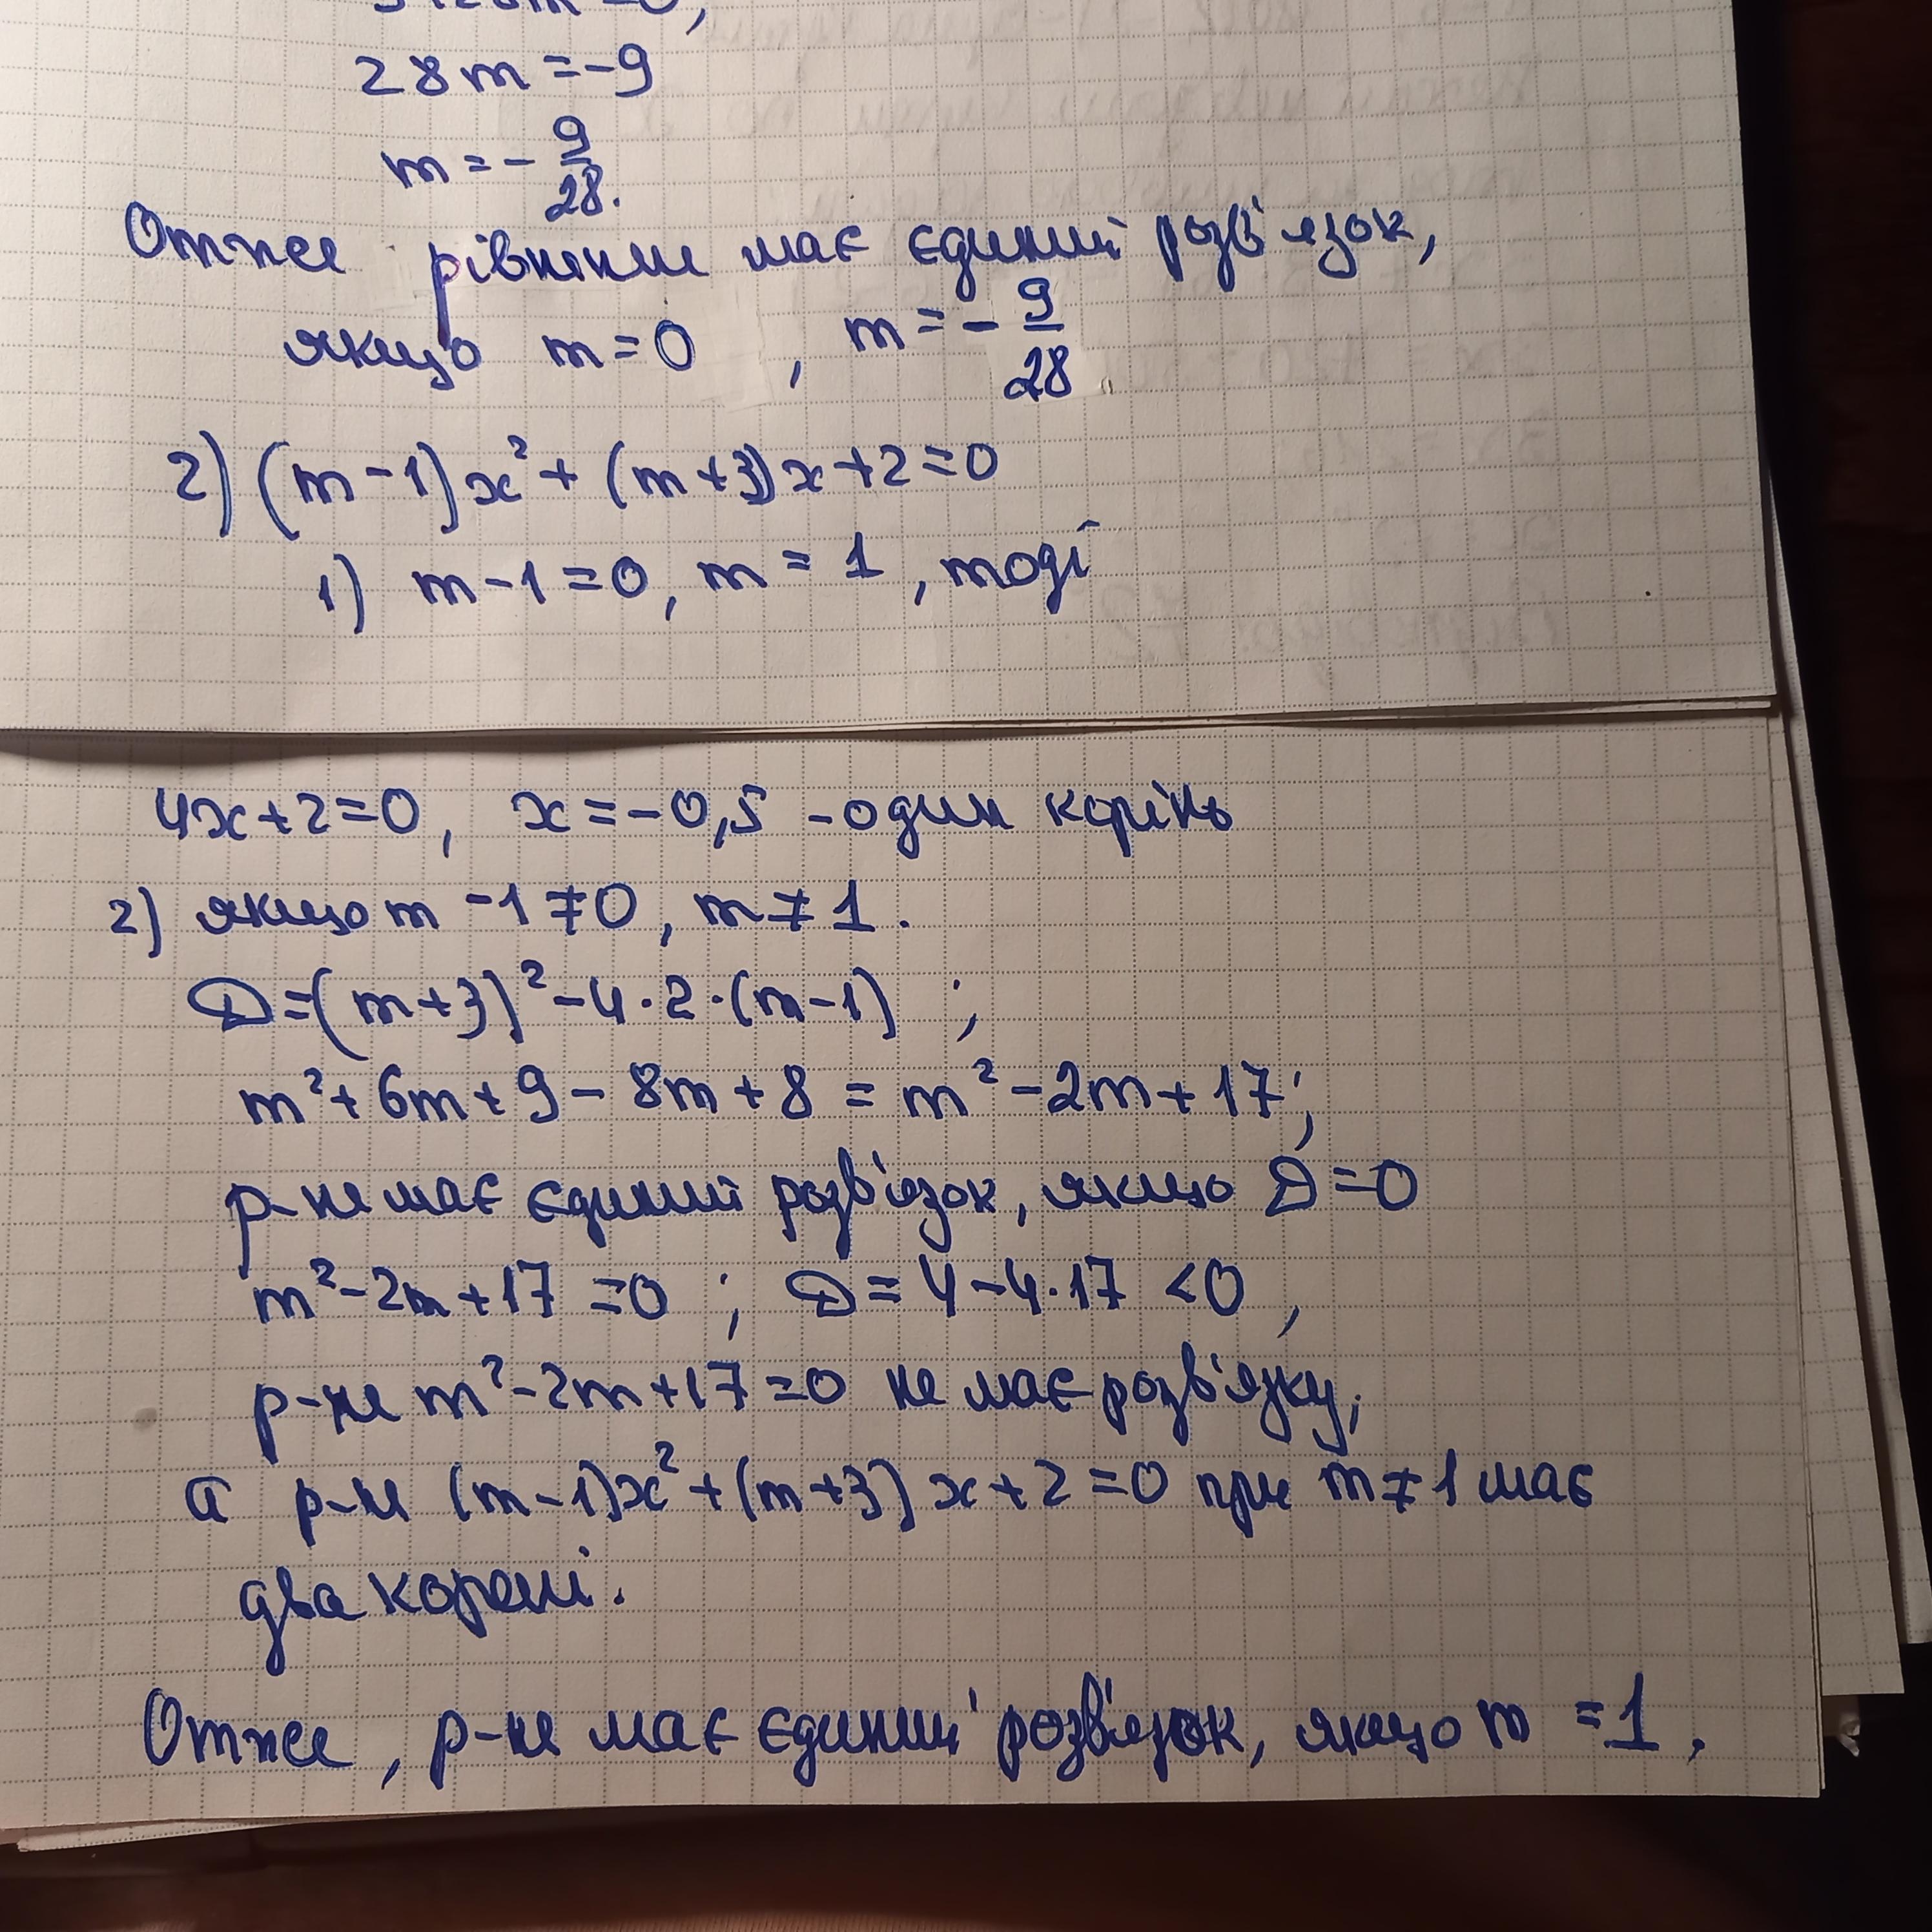 28m = -9
m = - 9/28.
Отже рівняння має єдиний розв'язок,
якщо m = 0 , m = - 9/28
2) (m - 1)x² + (m + 3)x + 2 = 0
1) m - 1 = 0, m = 1 , тоді
4x + 2 = 0, x = -0,5 - один корінь
2) якщо m - 1 ≠ 0, m ≠ 1.
D = (m + 3)² - 4 · 2 · (m - 1) ;
m² + 6m + 9 - 8m + 8 = m² - 2m + 17;
р-ня має єдиний розв'язок, якщо D = 0
m² - 2m + 17 = 0 ; D = 4 - 4 · 17 < 0 ,
р-ня m² - 2m + 17 = 0 не має розв'язку;
а р-ня (m - 1)x² + (m + 3)x + 2 = 0 при m ≠ 1 має
два корені.
Отже, р-ня має єдиний розв'язок, якщо m = 1,